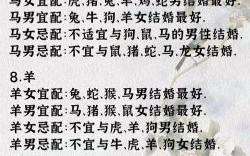 马女宜配:虎、猪、兔、羊、鸡、蛇男结婚最好.
马男宜配:兔、牛、狗、羊女结婚最好.
马女忌配:不适宜与狗、鼠、马的男性结婚.
马男忌配:不宜与鼠、猪、蛇、马、龙女结婚.
8.羊
羊女宜配:兔、蛇、猴、马男结婚最好.
羊男宜配:马、猪、猴、鼠女结婚最好.
羊女忌配:不宜与虎、羊、狗男结婚.
羊男忌配:不宜与牛、虎、羊、狗女结婚.